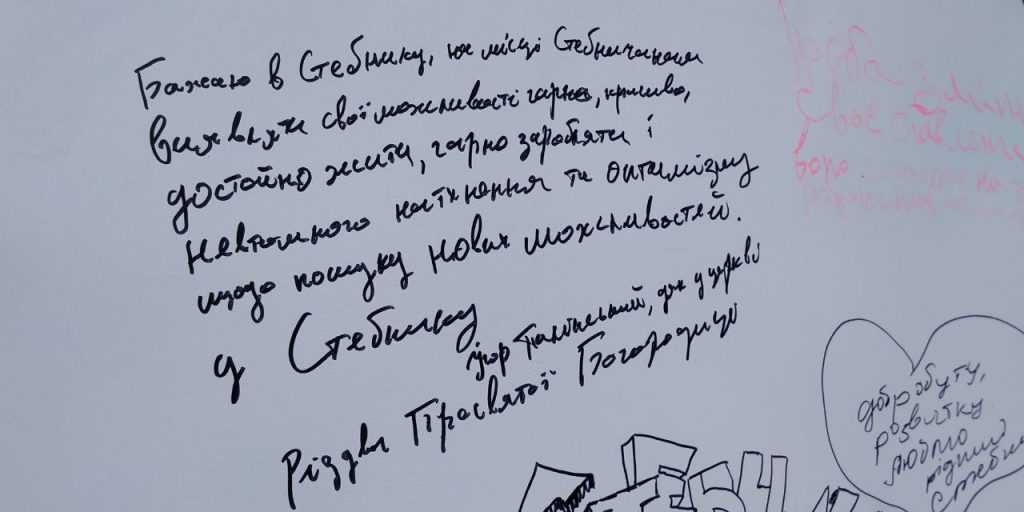 Бажаю в Стебнику, на місці Стебничанам
виявляти свої можливості гарно, красиво,
достойно жити, гарно заробляти і
невтомного натхнення та оптимізму
щодо пошуку нових можливостей.
у Стебнику
Ігор дяк у церкві
Різдва Пресвятої Богородиці
добробуту,
розвитку
люблю
рідний
Стебник